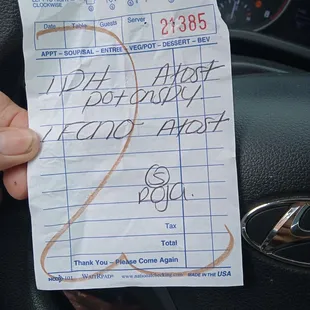 CLOCKWISE
Date Table Guests Server
21385
APPT - SOUP/SAL - ENTREE - VEG/POT - DESSERT - BEV
1 DH Atost
1 ECNO Atost
5
Tax
Total
Thank You - Please Come Again
MADE IN THE USA